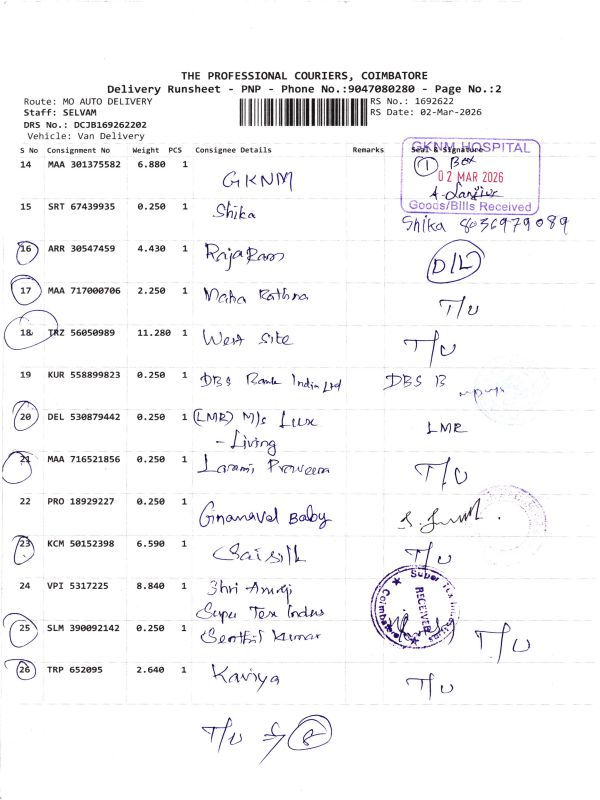 THE PROFESSIONAL COURIERS, COIMBATORE
Delivery Runsheet - PNP - Phone No.:9047080280 - Page No.:2
Route: MO AUTO DELIVERY
RS No.: 1692622
Staff: SELVAM
RS Date: 02-Mar-2026
DRS No.: DCJB169262202
Vehicle: Van Delivery
S No Consignment No Weight PCS Consignee Details Remarks Seal & Signature
14 MAA 301375582 6.880 1 GKNM
GKNM HOSPITAL
1 Box
02 MAR 2026
Goods/Bills Received
15 SRT 67439935 0.250 1 Shika Shika 8036979089
16 ARR 30547459 4.430 1 RajaRam D/L
17 MAA 717000706 2.250 1 Maha Rathna T/U
18 TRZ 56050989 11.280 1 West Site T/U
19 KUR 558899823 0.250 1 DBS Bank India Ltd DBS B
20 DEL 530879442 0.250 1 (LMR) M/s Lux LMR
- Living
21 MAA 716521856 0.250 1 Laxmi Praveena T/U
22 PRO 18929227 0.250 1 Gnanavel Baby
23 KCM 50152398 6.590 1 T/U
24 VPI 5317225 8.840 1 Shri
Super Tex Indus
Super Tex Industries
RECEIVED
Coimbatore
25 SLM 390092142 0.250 1 Senthil Kumar T/U
26 TRP 652095 2.640 1 Kaviya T/U
T/U ⇒ 8